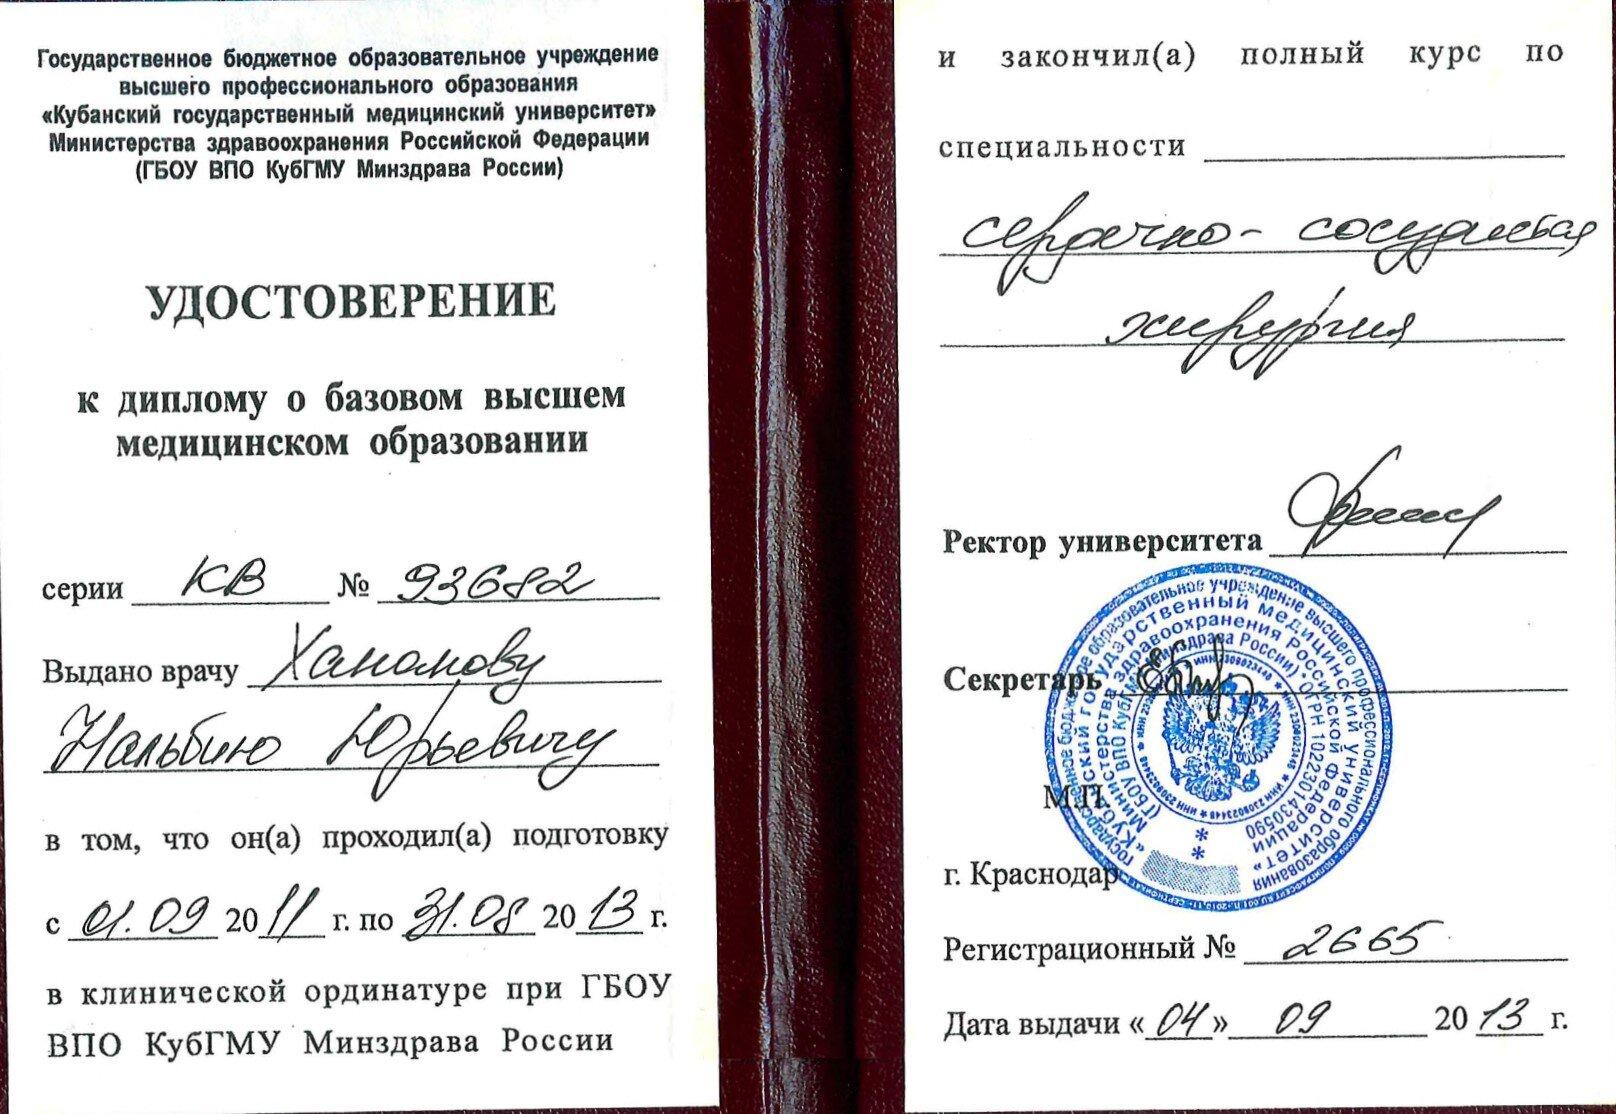 Государственное бюджетное образовательное учреждение
высшего профессионального образования
«Кубанский государственный медицинский университет»
Министерства здравоохранения Российской Федерации
(ГБОУ ВПО КубГМУ Минздрава России)
УДОСТОВЕРЕНИЕ
к диплому о базовом высшем
медицинском образовании
серии КВ № 93682
Выдано врачу Ханахову
Нальбию Юрьевичу
в том, что он(а) проходил(а) подготовку
с 01.09 2011 г. по 31.08 2013 г.
в клинической ординатуре при ГБОУ
ВПО КубГМУ Минздрава России
и закончил(а) полный курс по
специальности
сердечно-сосудистая
хирургия
Ректор университета
Секретарь
М.П.
г. Краснодар
Регистрационный № 2665
Дата выдачи «04» 09 2013 г.
Государственное бюджетное образовательное учреждение высшего профессионального образования
«Кубанский государственный медицинский университет»
Министерства здравоохранения Российской Федерации
(ГБОУ ВПО КубГМУ Минздрава России) * ОГРН 1022301430590